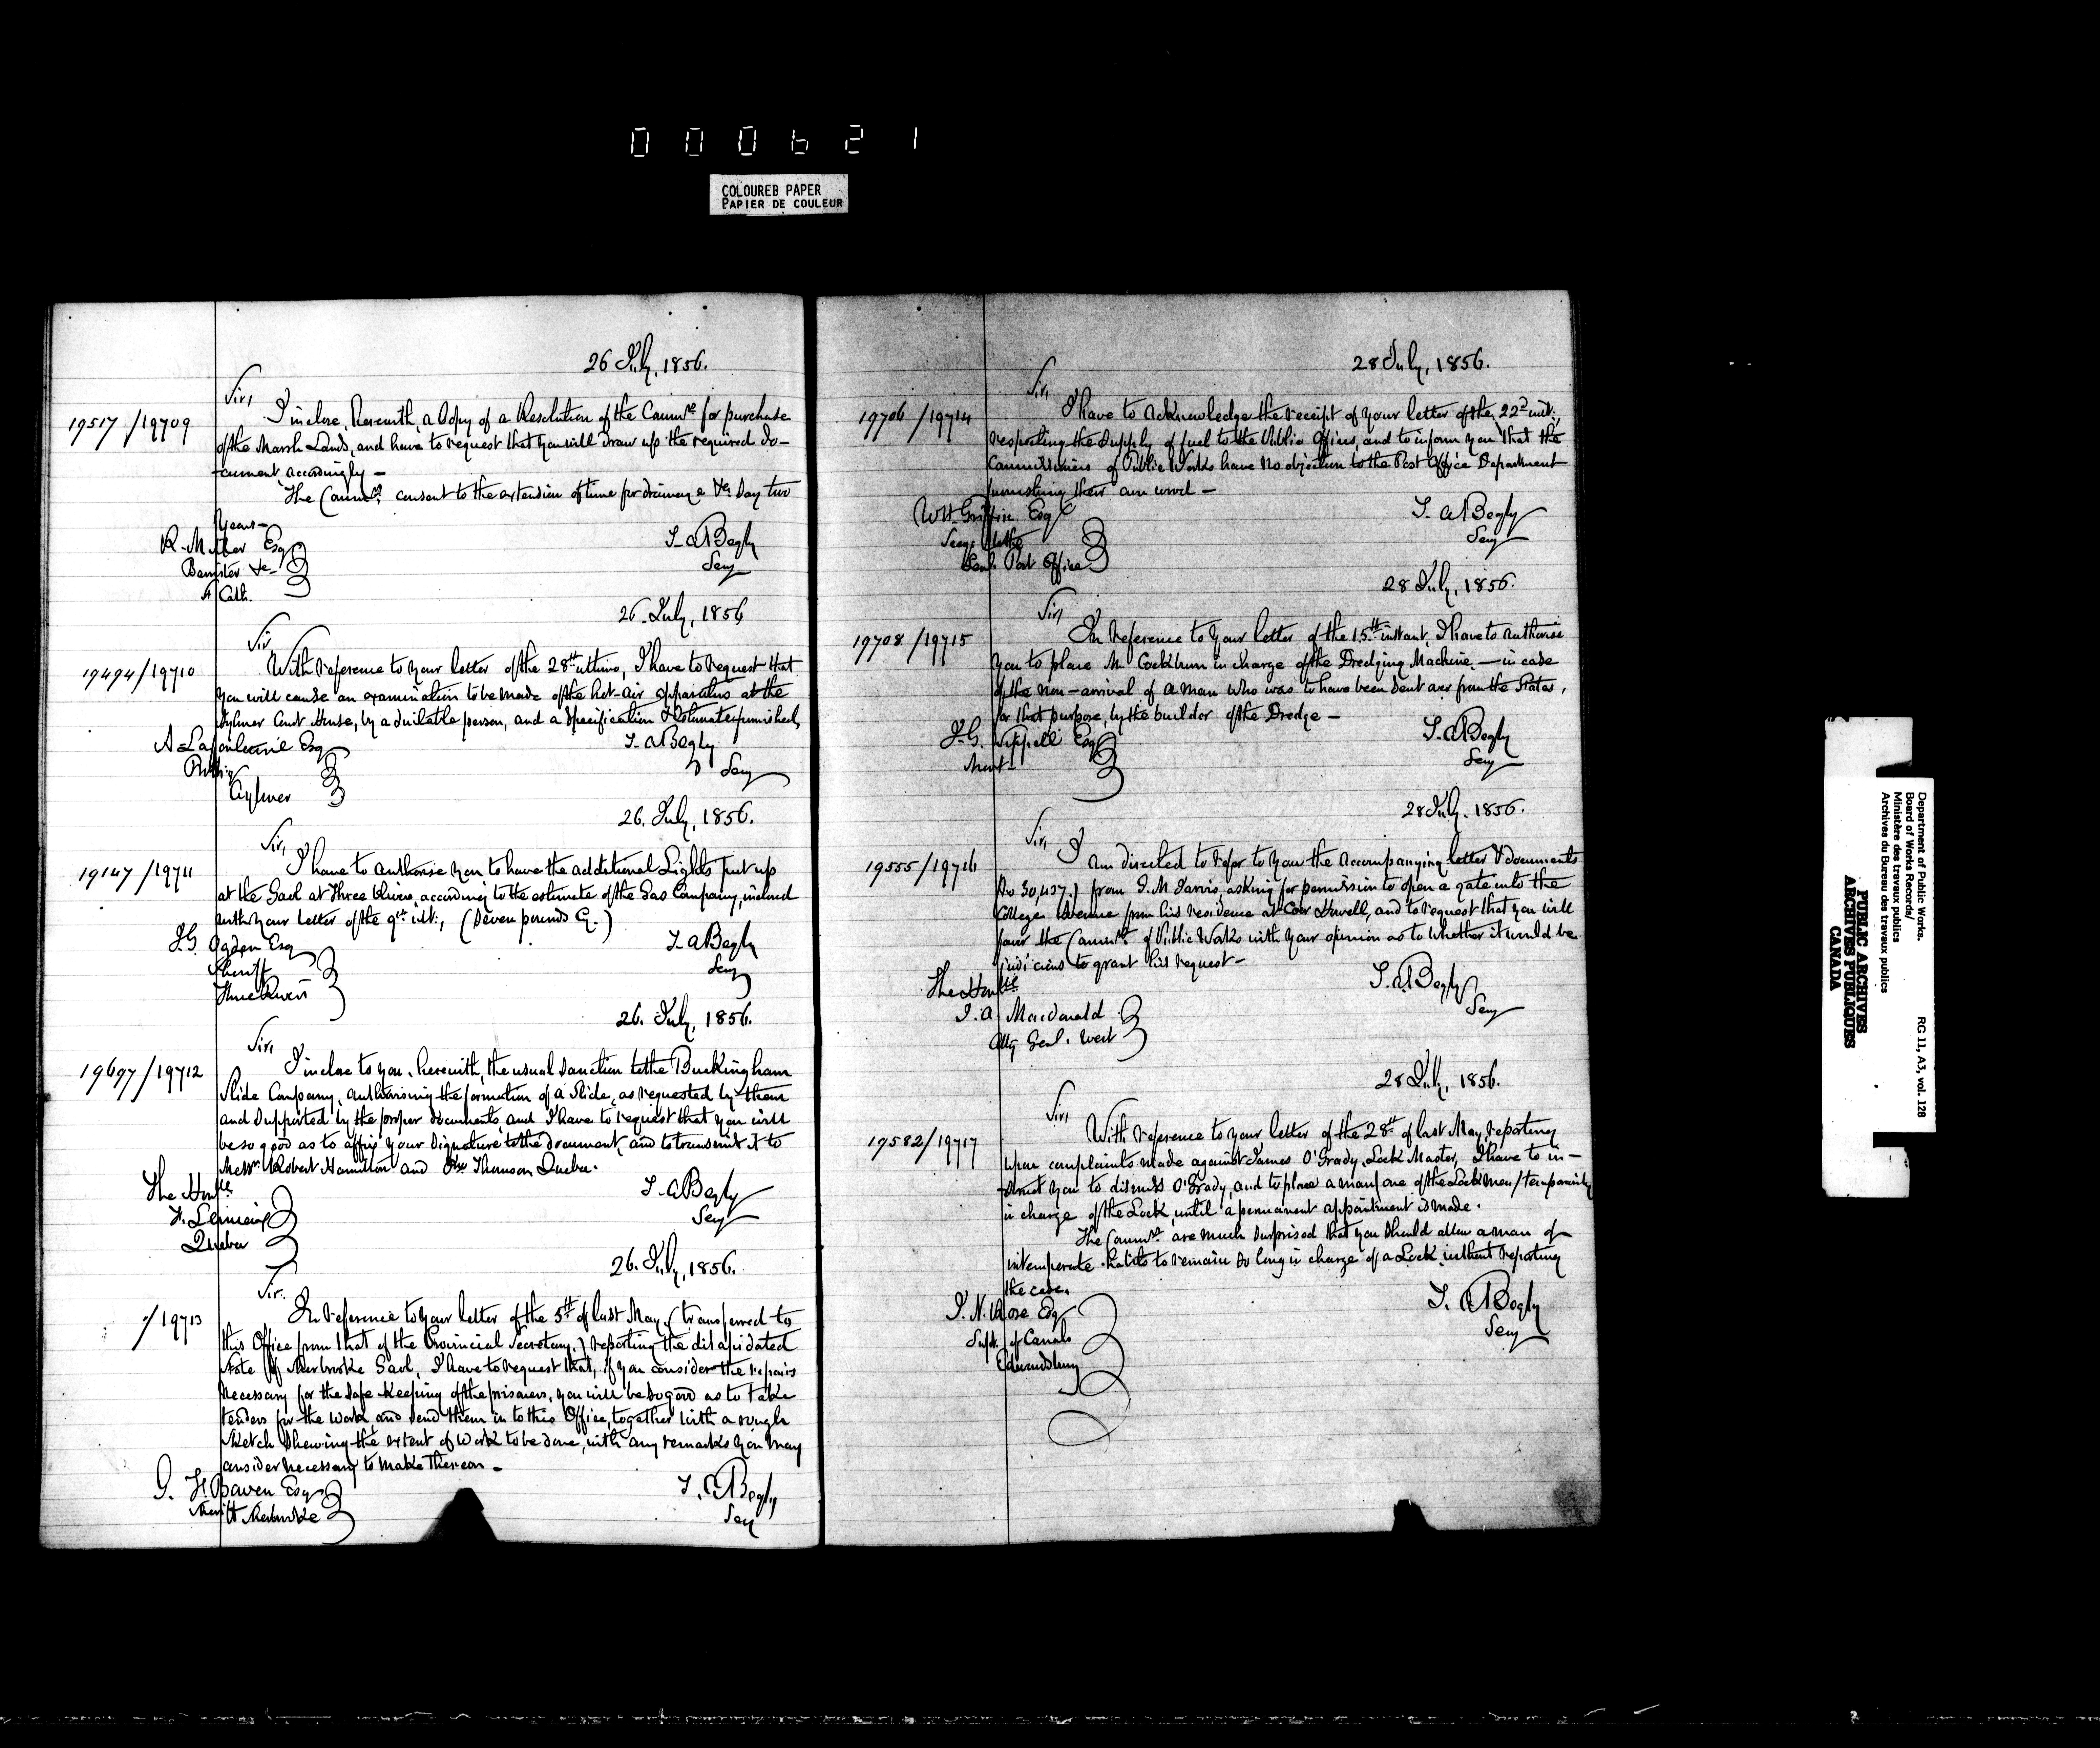 000621
COLOURED PAPER
PAPIER DE COULEUR
26 July, 1856.
Sir,
19517/19709
I inclose, herewith, a Copy of a Resolution of the Commrs for purchase
of the Marsh Lands, and have to request that you will draw up the required do-
-cument accordingly -
The Commrs consent to the extension of time for drainage &c: Say two
years -
R. Miller Esq
Barrister &c -
St Cath.
T. A Begly
Secy
26. July, 1856
Sir
19494/19710
With reference to your letter of the 28th ultimo, I have to request that
you will cause an examination to be made of the hot-air apparatus at the
Aylmer Court House, by a suitable person, and a Specification & Estimate furnished,
Esq
Aylmer
T. A Begly
Secy
26. July, 1856.
Sir,
19147/19711
I have to authorise you to have the additional Lights put up
at the Gaol at Three Rivers, according to the estimate of the Gas Company, inclosed
with your letter of the 9th ult:, (Seven pounds Cy.)
I. G. Ogden Esq
Sheriff
Three Rivers
T. A Begly
Secy
26. July, 1856.
Sir,
19697/19712
I inclose to you, herewith, the usual sanction to the Buckingham
Slide Company, authorising the formation of a Slide, as requested by them
and supported by the proper documents, and I have to request that you will
be so good as to affix your signature to the document, and to transmit it to
Messrs. Robert Hamilton and Thomson Quebec.
The Honble
F. Lemieux
Quebec
T. A Begly
Secy
26. July, 1856.
Sir.
/19713
In reference to your letter of the 5th of last May, (transferred to
this Office from that of the Provincial Secretary,) reporting the dilapidated
state of Sherbrooke Gaol, I have to request that, if you consider the repairs
necessary for the safe keeping of the prisoners, you will be so good as to take
tenders for the work, and send them in to this Office, together with a rough
sketch shewing the extent of work to be done, with any remarks you may
consider necessary to make thereon.
G. F. Bowen Esq
Sheriff Sherbrooke
T. A Begly
Secy
28 July, 1856.
Sir,
19706/19714
I have to acknowledge the receipt of your letter of the 22d inst:,
respecting the supply of fuel to the Public Offices, and to inform you that the
Commissioners of Public Works have no objection to the Post Office Department
furnishing their own wood -
W H. Griffin Esq
Secy to the
Genl. Post Office
T. A Begly
Secy
28 July, 1856.
Sir,
19708/19715
In reference to your letter of the 15th instant, I have to authorise
you to place Mr Cockburn in charge of the Dredging Machine - in case
of the non-arrival of a man who was to have been sent over from the States,
for that purpose, by the builder of the Dredge -
J. G. Sippell Esq
T. A Begly
Secy
28 July. 1856.
Sir,
19555/19716
I am directed to refer to you the accompanying letter & documents
(No 30,437.) from I. M Jarvis, asking for permission to open a gate into the
College Avenue from his residence at Coer Howell, and to request that you will
favor the Commrs of Public Works with your opinion as to whether it would be
judicious to grant his request -
The Honble
J. A Macdonald
Atty Genl. West
T. A. Begly
Secy
28 July, 1856.
Sir,
19582/19717
With reference to your letter of the 28th of last May, reporting
upon complaints made against James O'Grady, Lock Master, I have to in-
-struct you to dismiss O'Grady, and to place a man, one of the Lock men, temporarily
in charge of the Lock, until a permanent appointment is made.
The Commrs are much surprised that you should allow a man of
intemperate habits to remain so long in charge of a Lock, without reporting
the case.
I. N. Rose Esq
Supt. of Canals
Edwardsburg
T. A Begly
Secy
Department of Public Works.
Board of Works Records/
Ministère des travaux publics
Archives du Bureau des travaux publics
RG 11, A3, vol. 128
PUBLIC ARCHIVES
ARCHIVES PUBLIQUES
CANADA